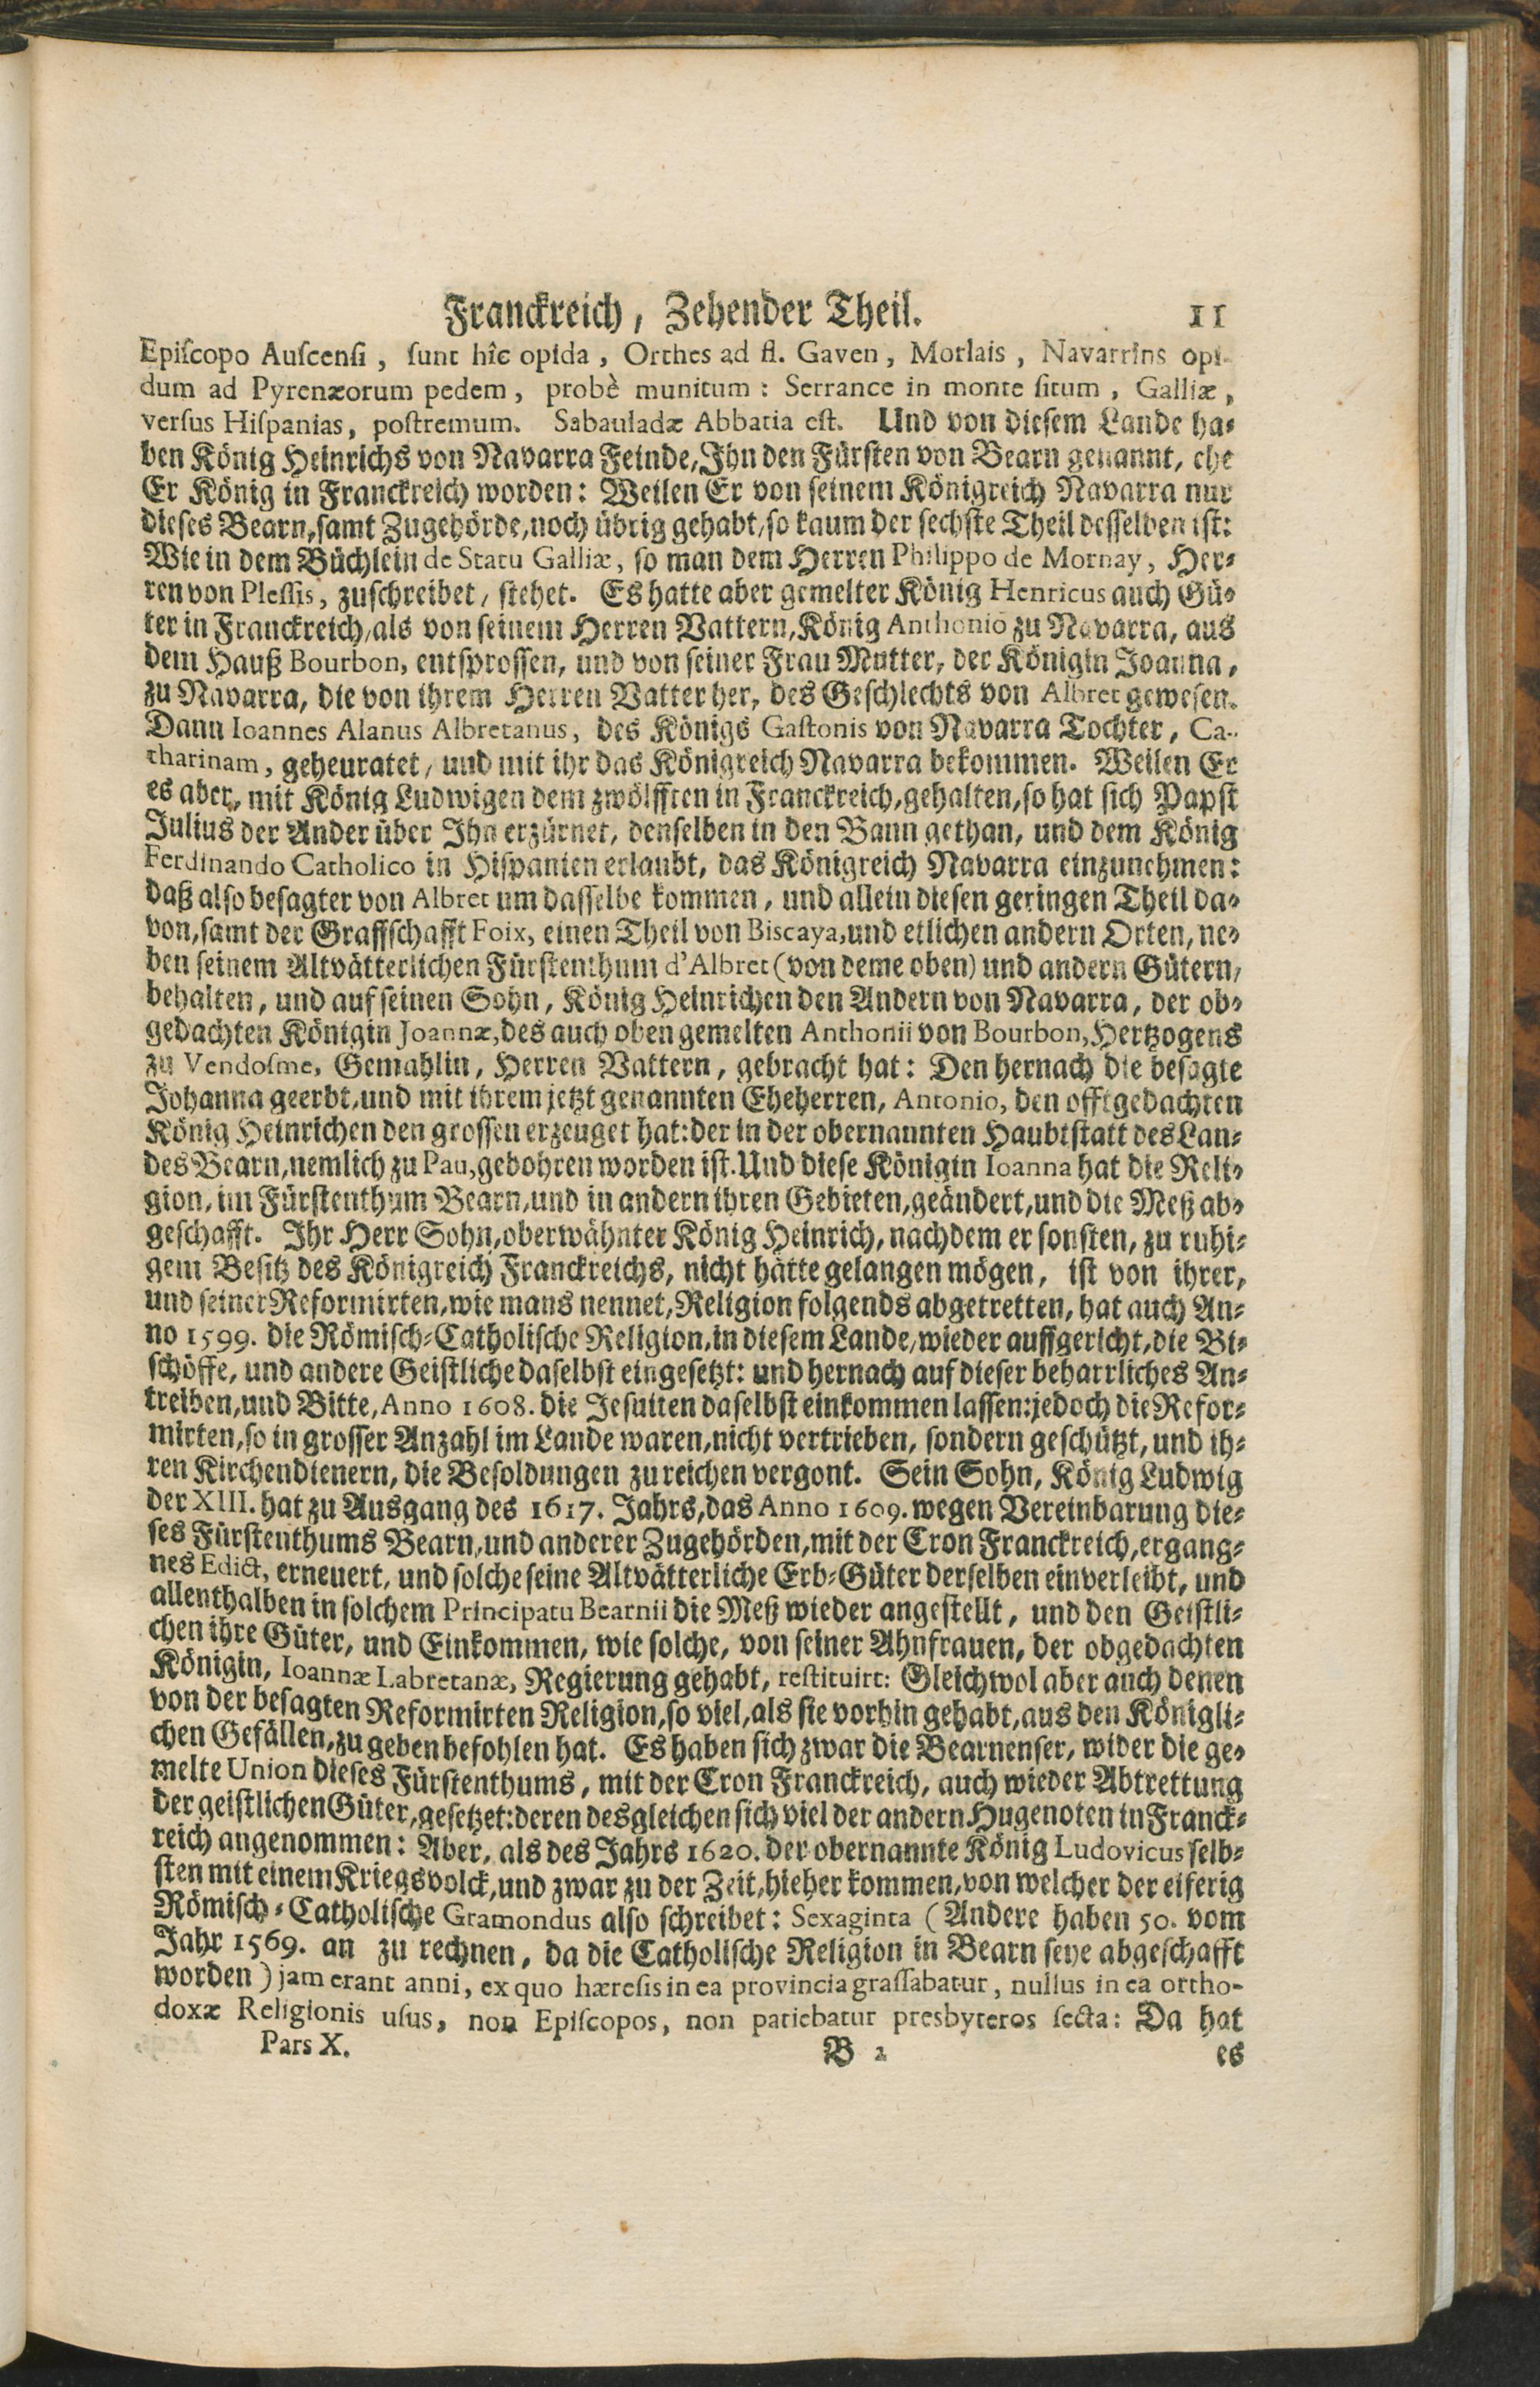 Franckreich, Zehender Theil. 11
Episcopo Auscensi, sunt hîc opida, Orthes ad fl. Gaven, Morlais, Navarrins opi-
dum ad Pyrenæorum pedem, probè munitum: Serrance in monte situm, Galliæ,
versus Hispanias, postremum. Sabauladæ Abbatia est. Und von diesem Lande ha-
ben König Heinrichs von Navarra Feinde, Ihn den Fürsten von Bearn genannt, ehe
Er König in Franckreich worden: Weilen Er von seinem Königreich Navarra nur
dieses Bearn, samt Zugehörde, noch übrig gehabt, so kaum der sechste Theil desselben ist:
Wie in dem Büchlein de Statu Galliæ, so man dem Herren Philippo de Mornay, Her-
ren von Plessis, zuschreibet, stehet. Es hatte aber gemelter König Henricus auch Gü-
ter in Franckreich, als von seinem Herren Vattern, König Anthoniō zu Navarra, aus
dem Hauß Bourbon, entsprossen, und von seiner Frau Mutter, der Königin Joanna,
zu Navarra, die von ihrem Herren Vatter her, des Geschlechts von Albret gewesen.
Dann Ioannes Alanus Albretanus, des Königs Gastonis von Navarra Tochter, Ca-
tharinam, geheuratet, und mit ihr das Königreich Navarra bekommen. Weilen Er
es aber, mit König Ludwigen dem zwölfften in Franckreich, gehalten, so hat sich Papst
Julius der Ander über Ihn erzürnet, denselben in den Bann gethan, und dem König
Ferdinando Catholico in Hispanien erlaubt, das Königreich Navarra einzunehmen:
daß also besagter von Albret um dasselbe kommen, und allein diesen geringen Theil da-
von, samt der Graffschafft Foix, einen Theil von Biscaya, und etlichen andern Orten, ne-
ben seinem Altvätterlichen Fürstenthum d'Albret (von deme oben) und andern Gütern,
behalten, und auf seinen Sohn, König Heinrichen den Andern von Navarra, der ob-
gedachten Königin Joannæ, des auch oben gemelten Anthonii von Bourbon, Hertzogens
zu Vendosme, Gemahlin, Herren Vattern, gebracht hat: Den hernach die besagte
Johanna geerbt, und mit ihrem jetzt genannten Eheherren, Antonio, den offtgedachten
König Heinrichen den grossen erzeuget hat: der in der obernannten Haubtstatt des Lan-
des Bearn, nemlich zu Pau, gebohren worden ist. Und diese Königin Ioanna hat die Reli-
gion, im Fürstenthum Bearn, und in andern ihren Gebieten, geändert, und die Meß ab-
geschafft. Ihr Herr Sohn, oberwähnter König Heinrich, nachdem er sonsten, zu ruhi-
gem Besitz des Königreich Franckreichs, nicht hätte gelangen mögen, ist von ihrer,
und seiner Reformirten, wie mans nennet, Religion folgends abgetretten, hat auch An-
no 1599. die Römisch-Catholische Religion, in diesem Lande, wieder auffgericht, die Bi-
schöffe, und andere Geistliche daselbst eingesetzt: und hernach auf dieser beharrliches An-
treiben, und Bitte, Anno 1608. die Jesuiten daselbst einkommen lassen: jedoch die Refor-
mirten, so in grosser Anzahl im Lande waren, nicht vertrieben, sondern geschützt, und ih-
ren Kirchendienern, die Besoldungen zu reichen vergont. Sein Sohn, König Ludwig
der XIII. hat zu Ausgang des 1617. Jahrs, das Anno 1609. wegen Vereinbarung die-
ses Fürstenthums Bearn, und anderer Zugehörden, mit der Cron Franckreich, ergang-
nes Edict, erneuert, und solche seine Altvätterliche Erb-Güter derselben einverleibt, und
allenthalben in solchem Principatu Bearnii die Meß wieder angestellt, und den Geistli-
chen ihre Güter, und Einkommen, wie solche, von seiner Ahnfrauen, der obgedachten
Königin, Ioannæ Labretanæ, Regierung gehabt, restituirt: Gleichwol aber auch denen
von der besagten Reformirten Religion, so viel, als sie vorhin gehabt, aus den Königli-
chen Gefällen, zu geben befohlen hat. Es haben sich zwar die Bearnenser, wider die ge-
melte Union dieses Fürstenthums, mit der Cron Franckreich, auch wieder Abtrettung
der geistlichen Güter, gesetzet: deren desgleichen sich viel der andern Hugenoten in Franck-
reich angenommen: Aber, als des Jahrs 1620. der obernannte König Ludovicus selb-
sten mit einem Kriegsvolck, und zwar zu der Zeit, hieher kommen, von welcher der eiferig
Römisch-Catholische Gramondus also schreibet: Sexaginta (Andere haben 50. vom
Jahr 1569. an zu rechnen, da die Catholische Religion in Bearn seye abgeschafft
worden) jam erant anni, ex quo hæresis in ea provincia grassabatur, nullus in ea ortho-
doxæ Religionis usus, non Episcopos, non patiebatur presbyteros secta: Da hat
Pars X. B 2 es